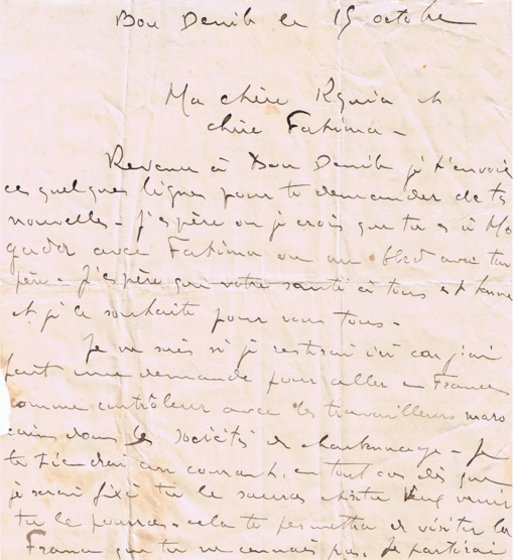 Bou Denib le 15 octobre
Ma chère Rquia et
chère Fatima -
Revenu à Bou Denib je t'envoie
ces quelques lignes pour te demander de tes
nouvelles - j'espère ou je crois que tu es à Mo
gador avec Fatima ou au bled avec ton
père - J'espère que votre santé à tous est bonne
et je le souhaite pour vous tous -
Je ne sais si je resterai ici car j'ai
fait une demande pour aller en France
comme contrôleur avec les travailleurs maro
cains dans les sociétés de charbonnage - Je
te tiendrai au courant, en tout cas dès que
je serai fixé tu le sauras et si tu veux venir
tu le pourras - cela te permettra de visiter la
France que tu ne connais pas. Je partirai